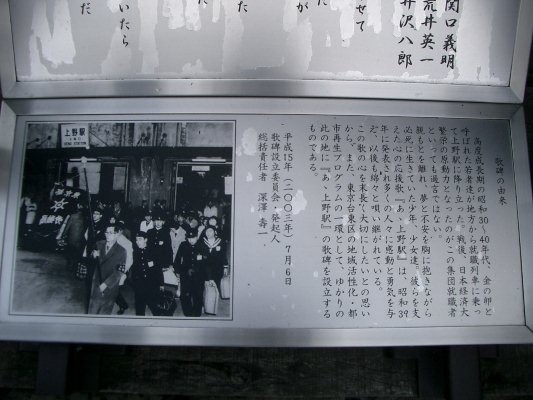 関口義明
荒井英一
井沢八郎
せて
が
た
いたら
だ
歌碑の由来
高度成長期の昭和30～40年代、金の卵と
呼ばれた若者達が地方から就職列車に乗っ
て上野駅に降り立った。戦後、日本経済大
繁栄の原動力となったのがこの集団就職者
といっても過言ではない。
親もとを離れ、夢と不安を胸に抱きながら
必死に生きていた少年、少女達。彼らを支
えた心の応援歌『あゝ上野駅』は、昭和39
年に発表され多くの人々に感動と勇気を与
え、以後も綿々と唄い継がれている。
この歌の心を末長く大切にしたいとの思い
から、また、東京台東区の地域活性化・都
市再生プログラムの一環として、ゆかりの
此の地に『あゝ上野駅』の歌碑を設立する
ものである。
平成15年（二〇〇三年）7月6日
歌碑設立委員会・発起人
総括責任者 深澤 壽一
上野駅
UENO STATION